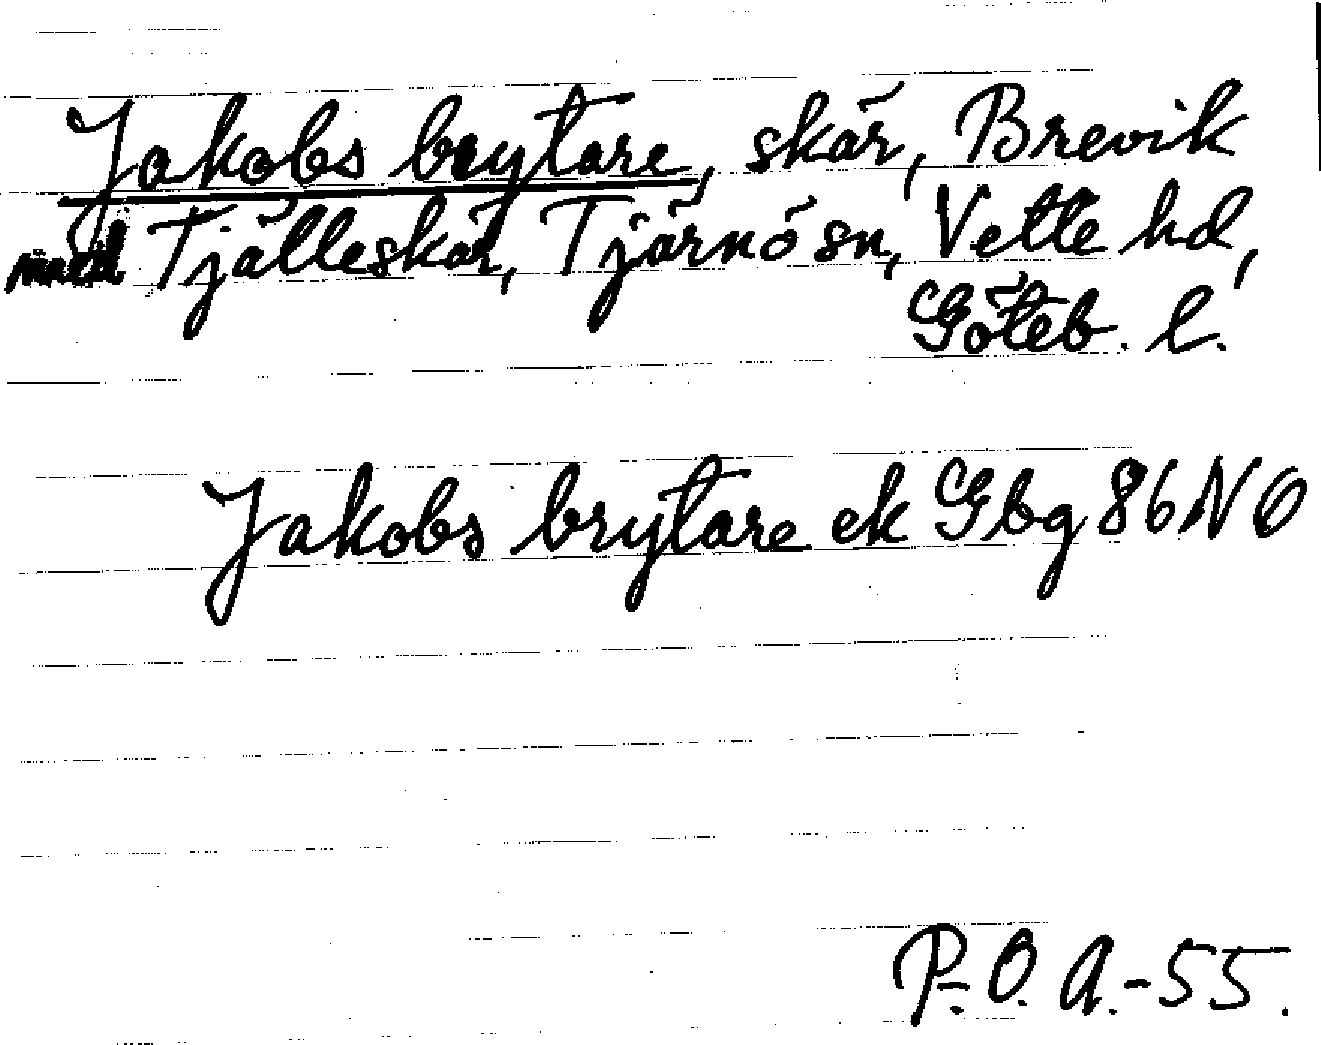 Jakobs brytare, skär, Brevik
med Tjälleskär, Tjärnö sn, Vette hd,
Göteb. l.
Jakobs brytare ek Gbg 86 NO
P.-O. A.-55.